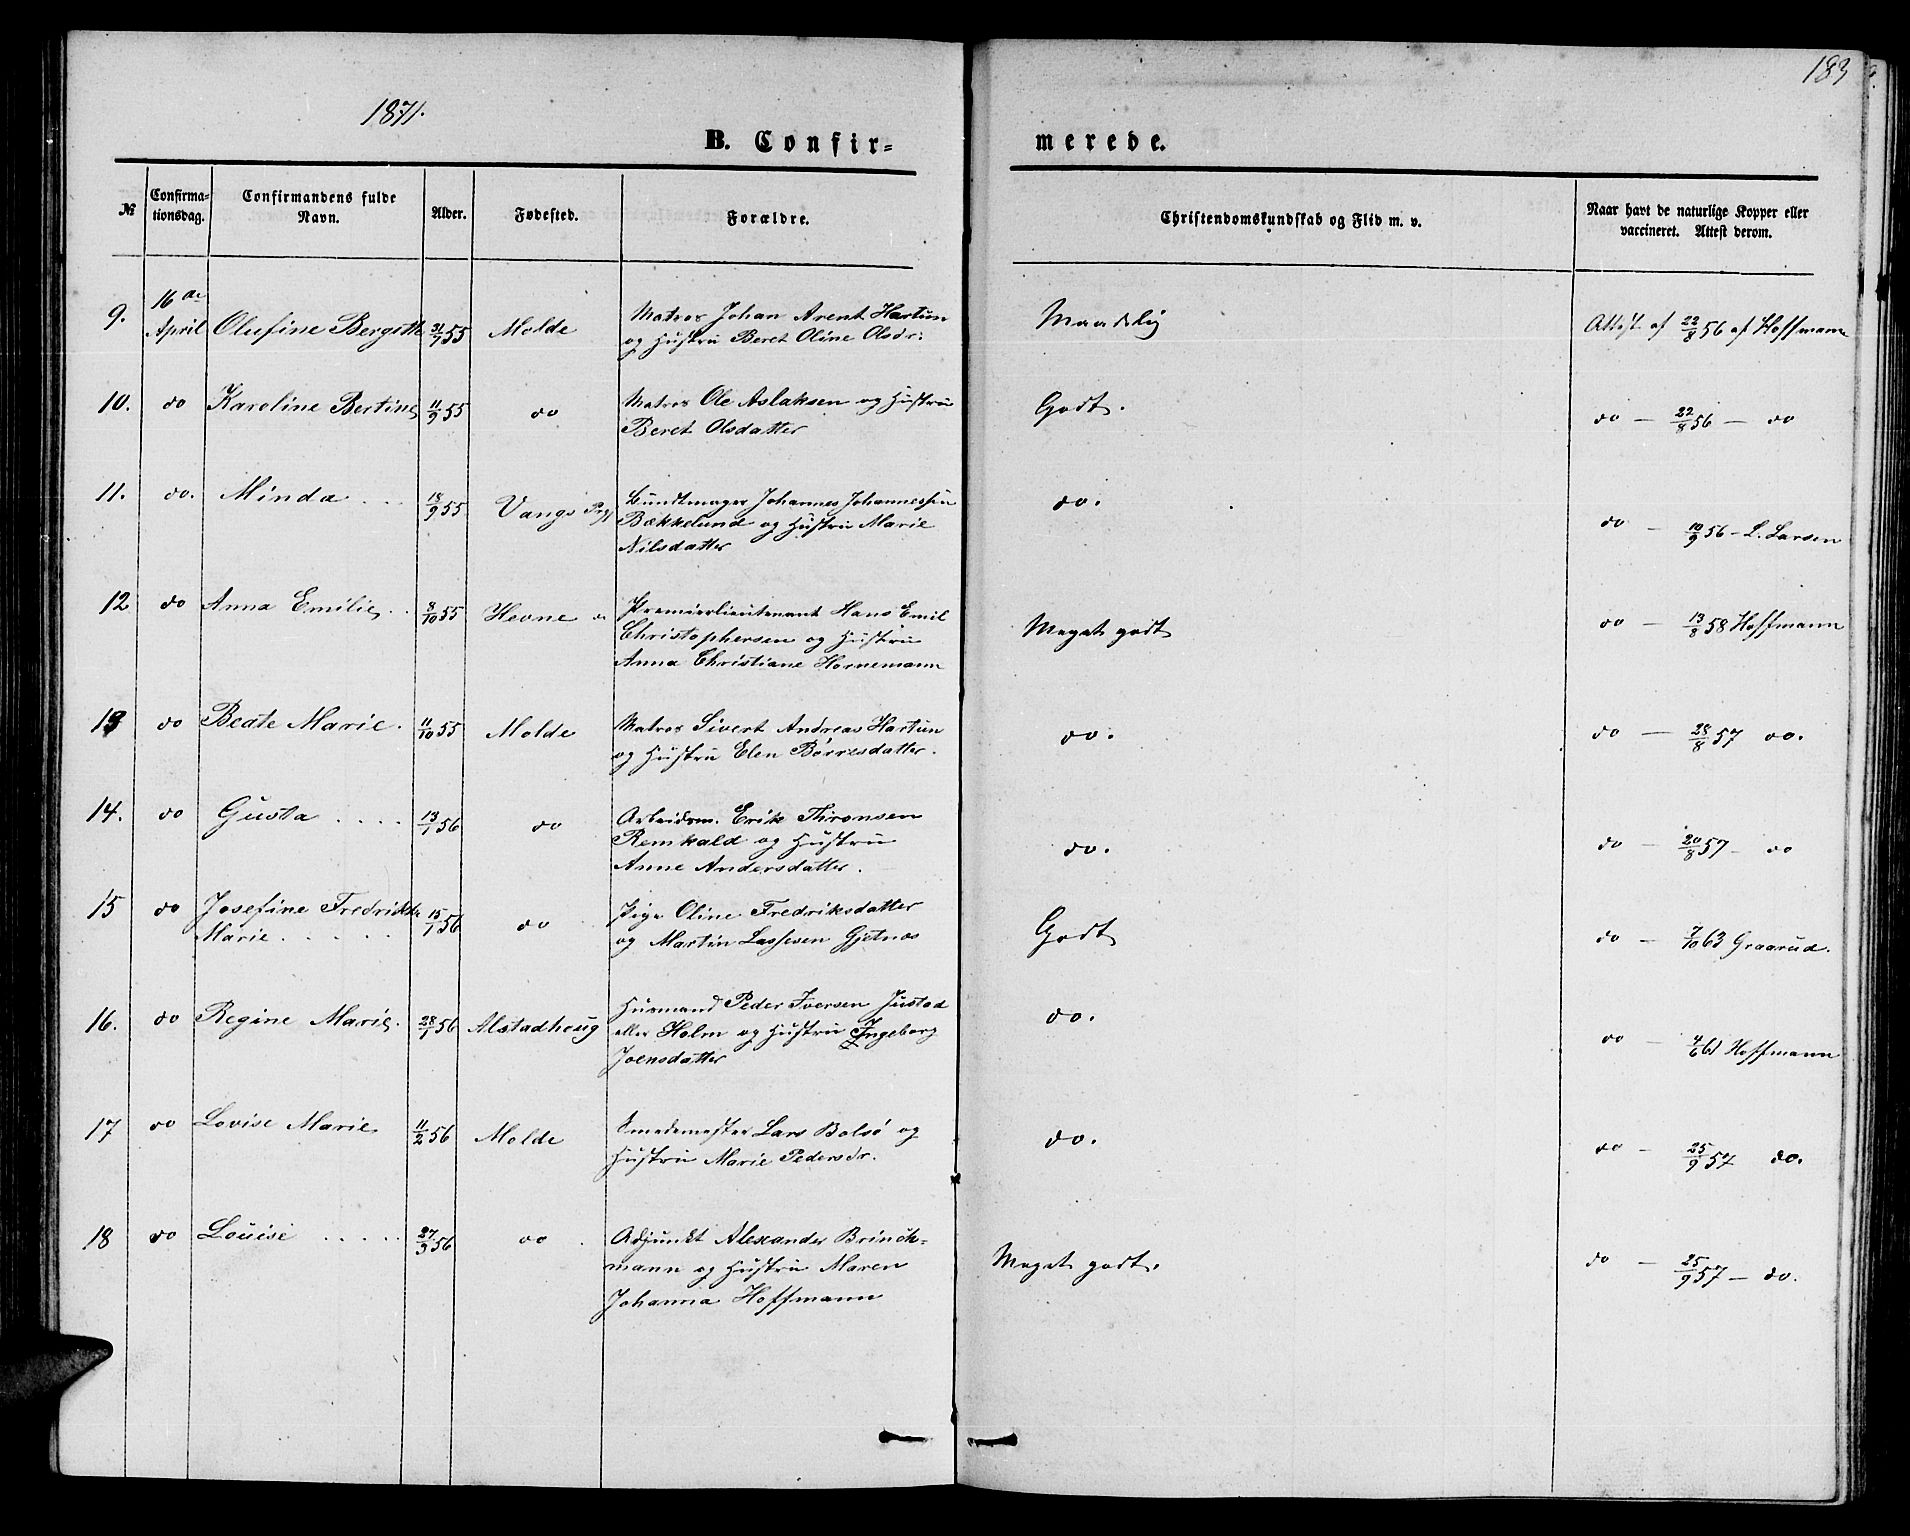 183
1871.
B. Confir=
merede.
№
Confirma-
tionsdag.
Confirmandens fulde
Navn.
Alder.
Fødested.
Forældre.
Christendomskundskab og Flid m. v.
Naar havt de naturlige Kopper eller
vaccineret. Attest derom.
9. 16de April Olufine Bergitte 31/7 55 Molde Matros Johan Arent Hartun
og Hustru Beret Oline Olsdr: Maadelig Attest af 22/8 56 af Hoffmann
10. do Karoline Bertine 11/9 55 do Matros Ole Aslaksen og Hustru
Beret Olsdatter Godt. do — 22/8 56 — do
11. do. Minda 18/9 55 Vangs Prgj Bundtmager Johannes Johannessen
Bækkelund og Hustru Marie
Nilsdatter do. do — 10/9 56 — L. Larsen
12 do Anna Emilie 8/10 55 Hevne Premierlieutenant Hans Emil
Christophersen og Hustru
Anna Christiane Hornemann Meget godt do — 13/8 58 Hoffmann
13 do Beate Marie. 11/10 55 Molde Matros Sivert Andreas Hartun
og Hustru Elen Børresdatter. do. do — 28/8 57 do.
14. do Gusta 13/1 56 do Arbeidsm. Erik Thronsen
Remkald og Hustru
Anne Andersdatter. do. do — 20/8 57 — do
15 do Josefine Fredrikke 15/1 56 do Pige Oline Fredriksdatter
Marie og Martin Lassesen Gjetnæs Godt do — 7/10 63 Graarud.
16. do Regine Marie. 28/1 56 Alstadhoug Husmand Peder Iversen Justad
eller Holm og Hustru Ingeborg
Joensdatter do. do — 4/6 61 Hoffmann
17 do Lovise Marie 11/2 56 Molde Smedemester Lars Bolsø og
Hustru Marie Pedersdr. do. do — 25/9 57 do.
18 do Louise 27/3 56 do Adjunkt Alexander Brinch=
mann og Hustru Maren
Johanna Hoffmann Meget godt. do — 25/9 57 — do.